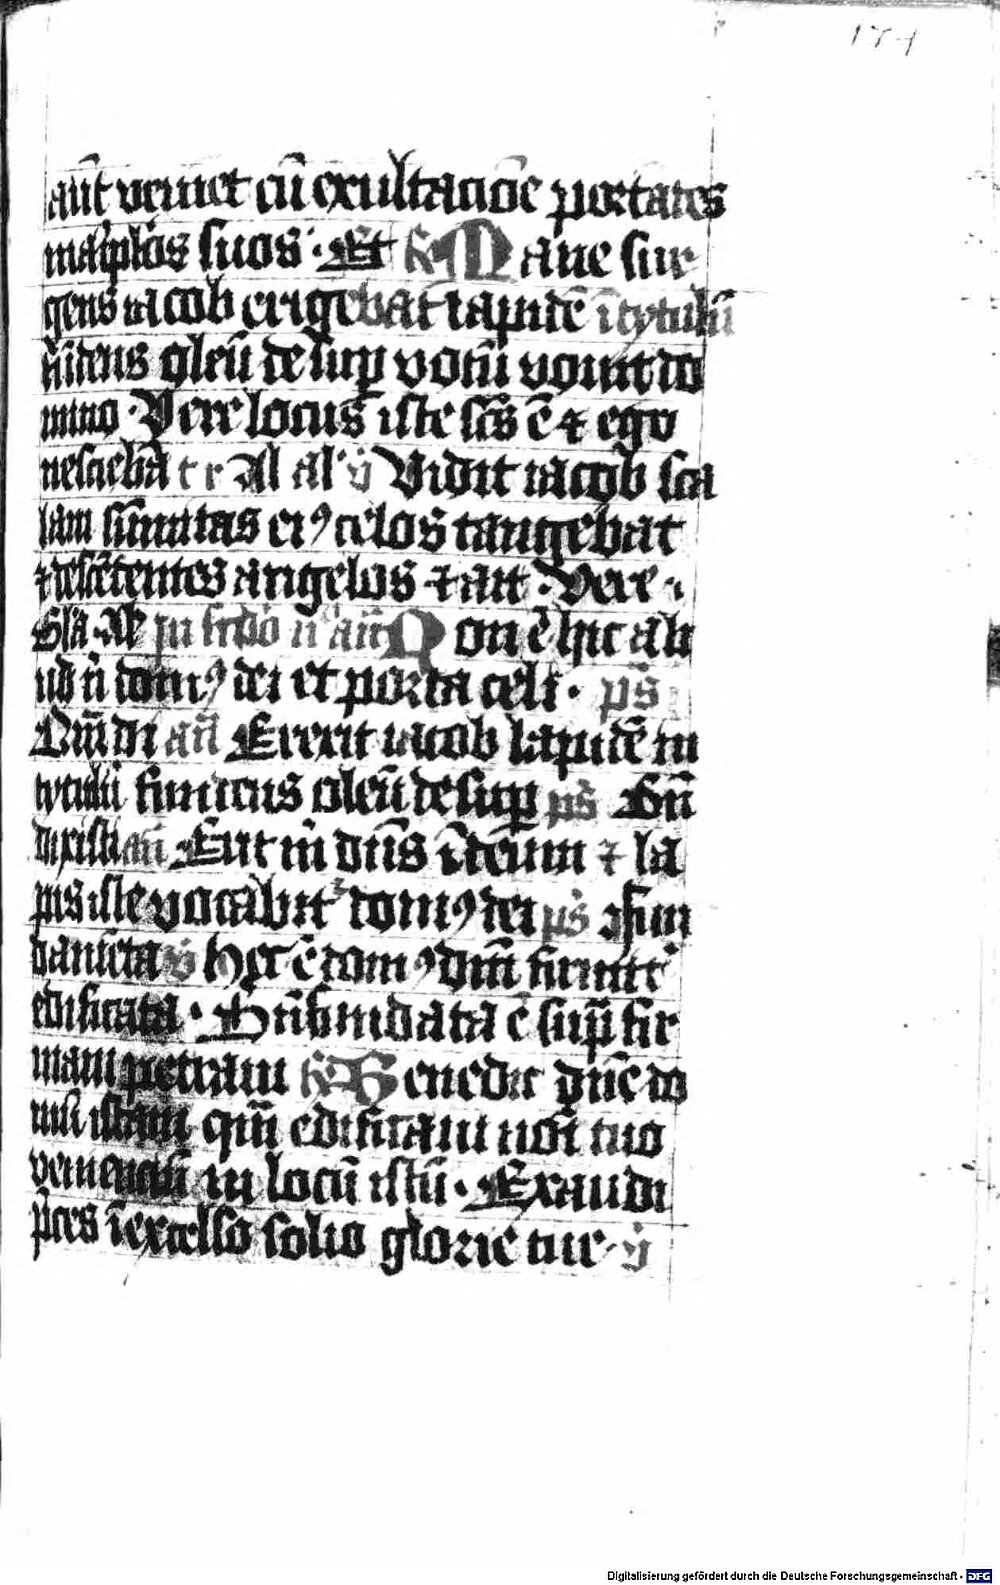 174
aūt veniet cū exultacioē portātes
māiplos suos · Et R Mane sur
gens iacob erigebat lapidē ī tytulū
fūdens oleū desup votū vouit do
mino · Vere locus iste scs ē ⁊ ego
nesciebā t r Al al' v̄ Vidit iacob sca
lam sūmitas eiꝰ celos tangebat
⁊ descēdentes angelos ⁊ ait · Vere ·
Gła · Non ē hic ali
ud n̄ domꝰ dei et porta celi · ps̄
Dm̄ di an̄ Erexit iacob lapidē in
tytulū fundens oleū desup ps̄ Bn̄
dixisti an̄ Erit m̄ dn̄s ī deum ⁊ la
pis iste vocabit᷑ domꝰ dei ps̄ Fun
damēta v̄ Hec ē domꝰ dm̄ firmit᷑
edificata · Bn̄ fundata ē sup̄ fir
mam petram R Benedic dn̄e do
mū istam qm̄ edificaui noī tuo
venienciū in locū istū · Exaudi
p̄ces ī excelso solio glorie tue · v̄
Digitalisierung gefördert durch die Deutsche Forschungsgemeinschaft - DFG